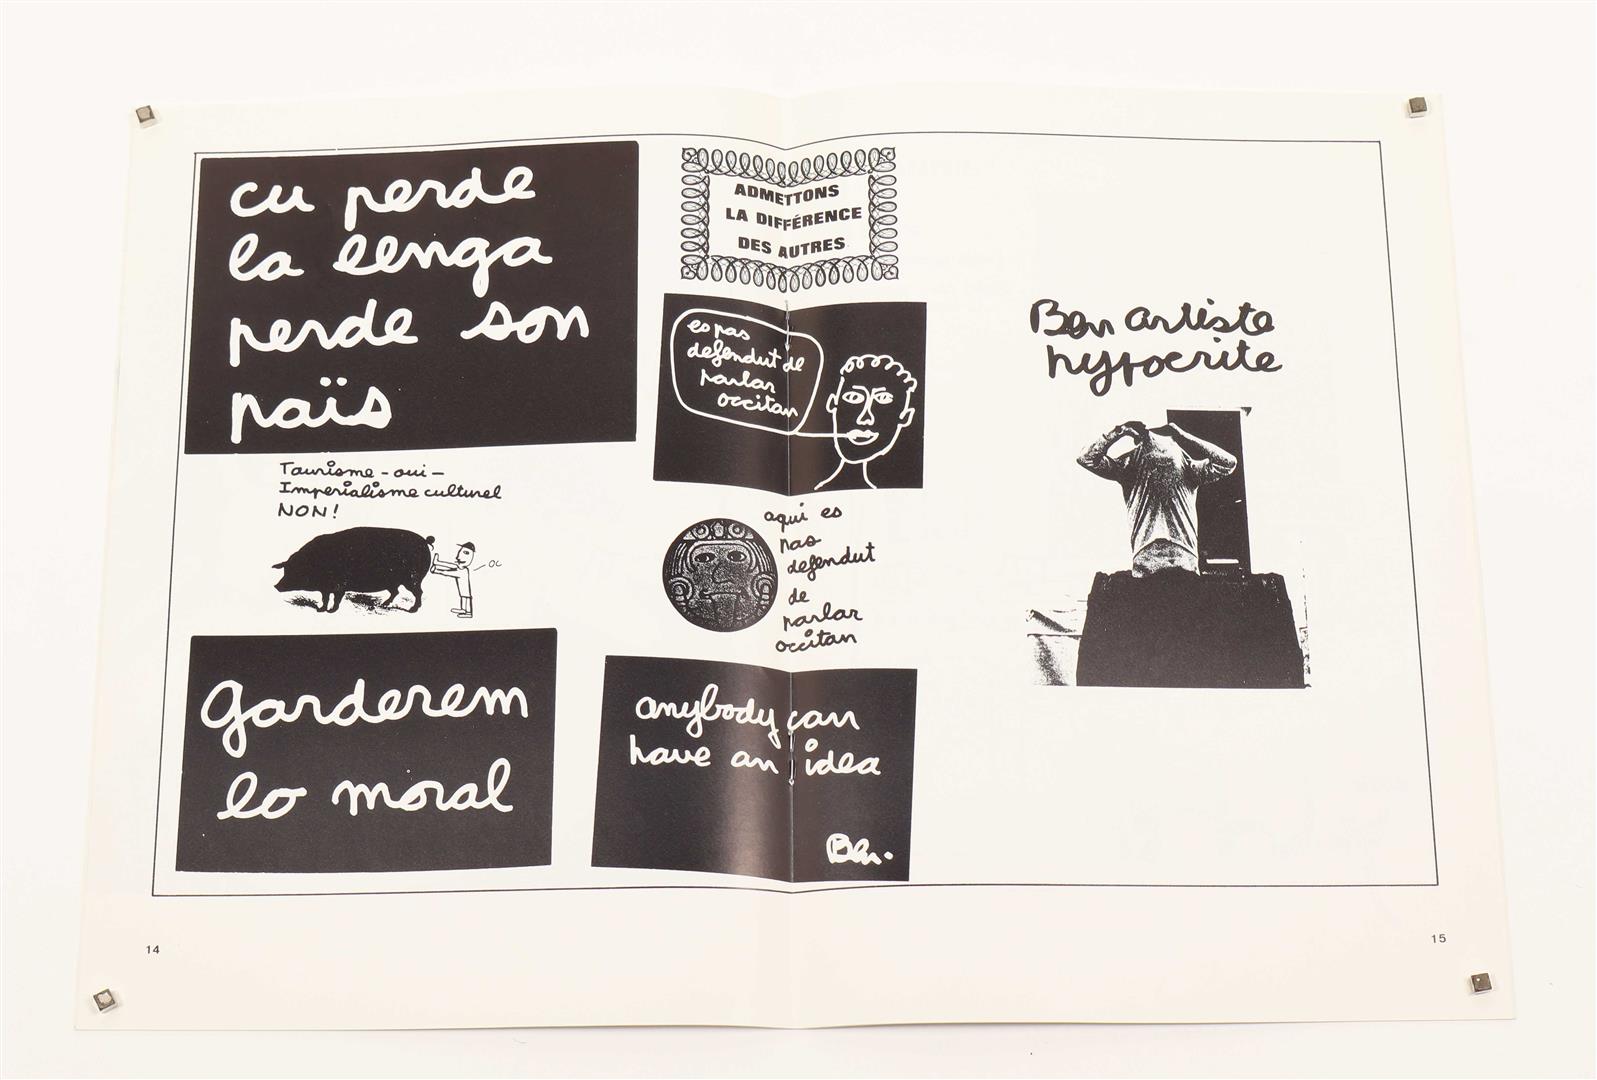 cu perde
la lenga
perde son
païs
Tourisme - oui -
Imperialisme culturel
NON!
OC
Garderem
lo moral
ADMETTONS
LA DIFFÉRENCE
DES AUTRES
es pas
defendut de
parlar
occitan
aqui es
pas
defendut
de
parlar
occitan
anybody can
have an idea
Ben.
Ben artiste
hypocrite
14
15